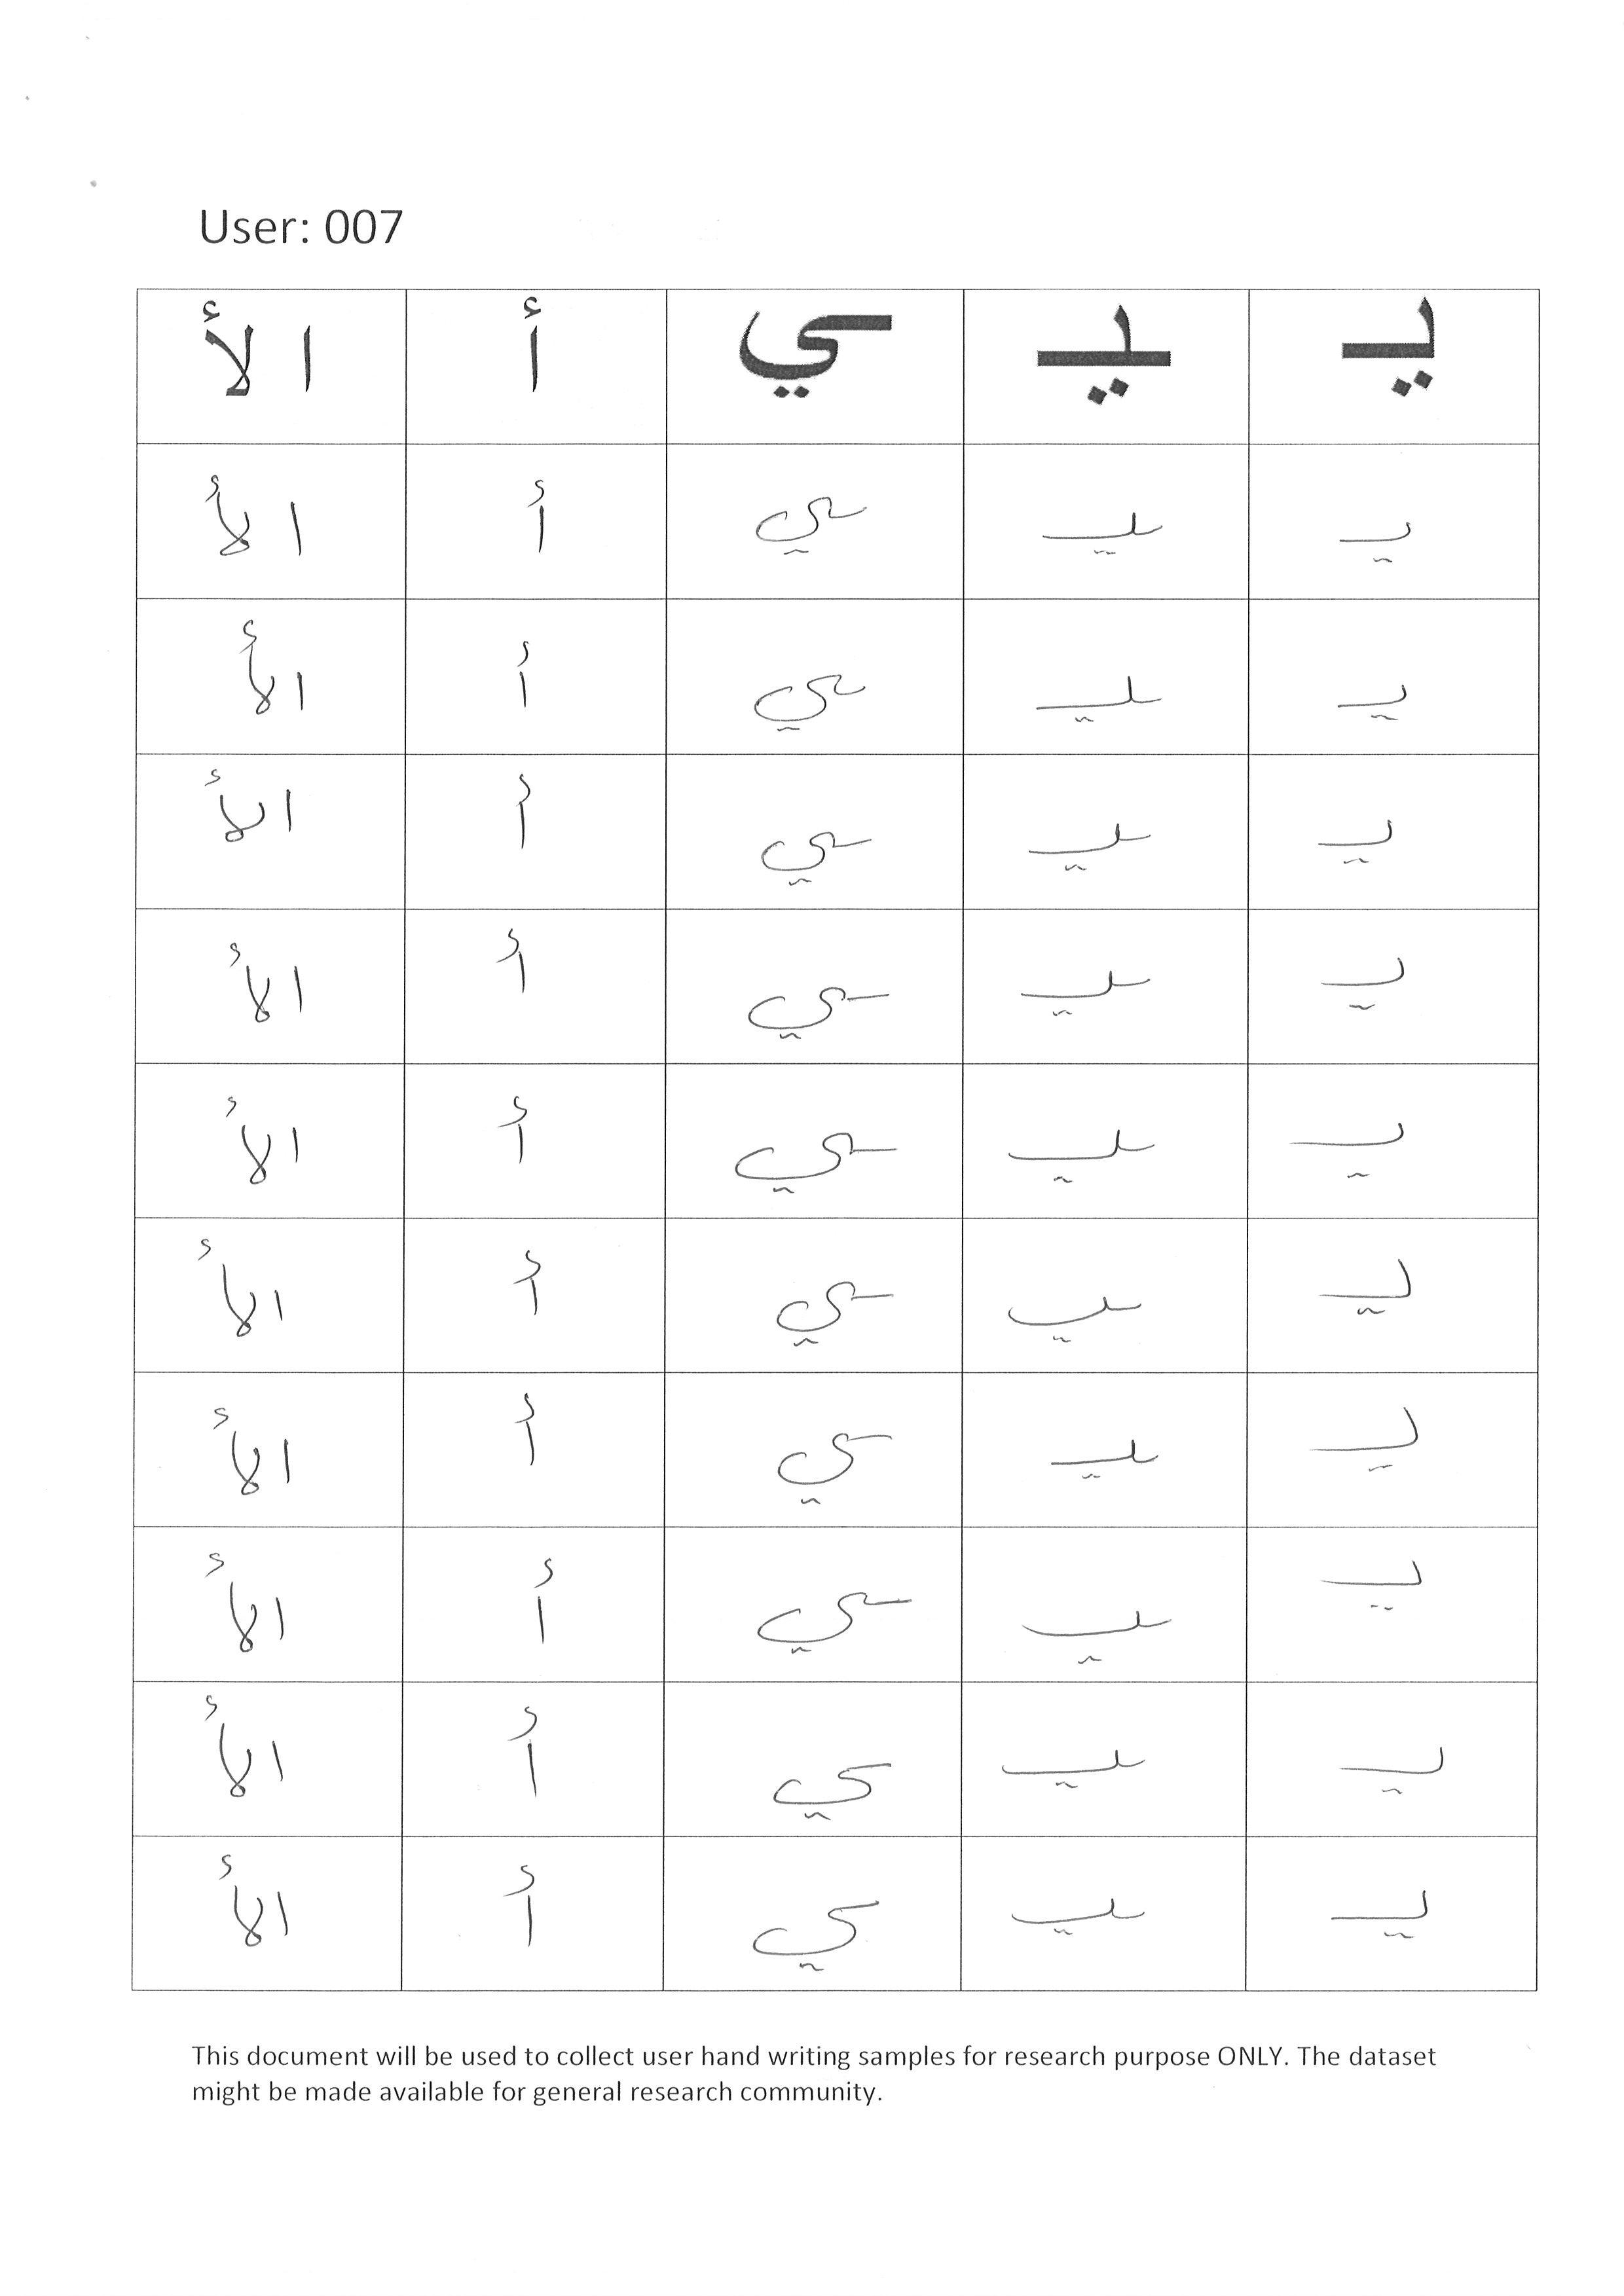 User: 007
يـ ـيـ ـي أ الأ
يـ ـيـ ـي أ الأ
يـ ـيـ ـي أ الأ
يـ ـيـ ـي أ الأ
يـ ـيـ ـي أ الأ
يـ ـيـ ـي أ الأ
يـ ـيـ ـي أ الأ
يـ ـيـ ـي أ الأ
يـ ـيـ ـي أ الأ
يـ ـيـ ـي أ الأ
يـ ـيـ ـي أ الأ
This document will be used to collect user hand writing samples for research purpose ONLY. The dataset
might be made available for general research community.